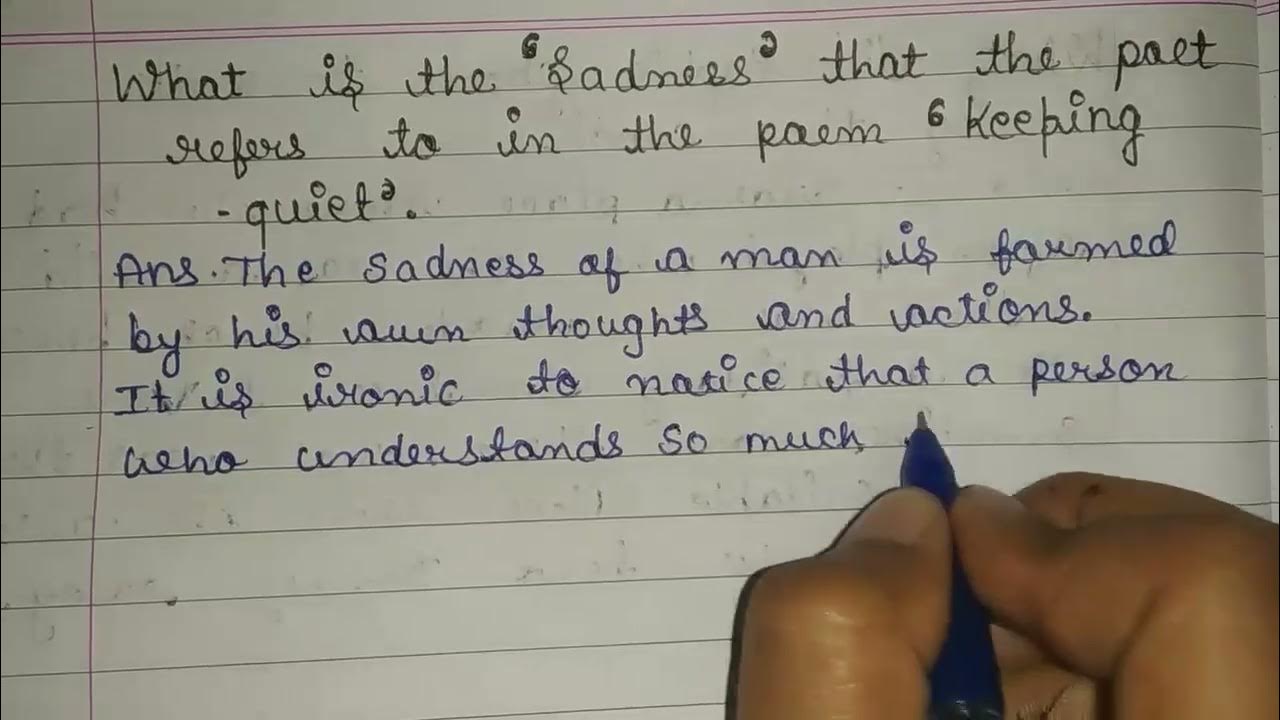 What is the 'Sadness' that the poet
refers to in the poem 'Keeping
-quiet'.
Ans. The sadness of a man is formed
by his own thoughts and actions.
It is ironic to notice that a person
who understands so much